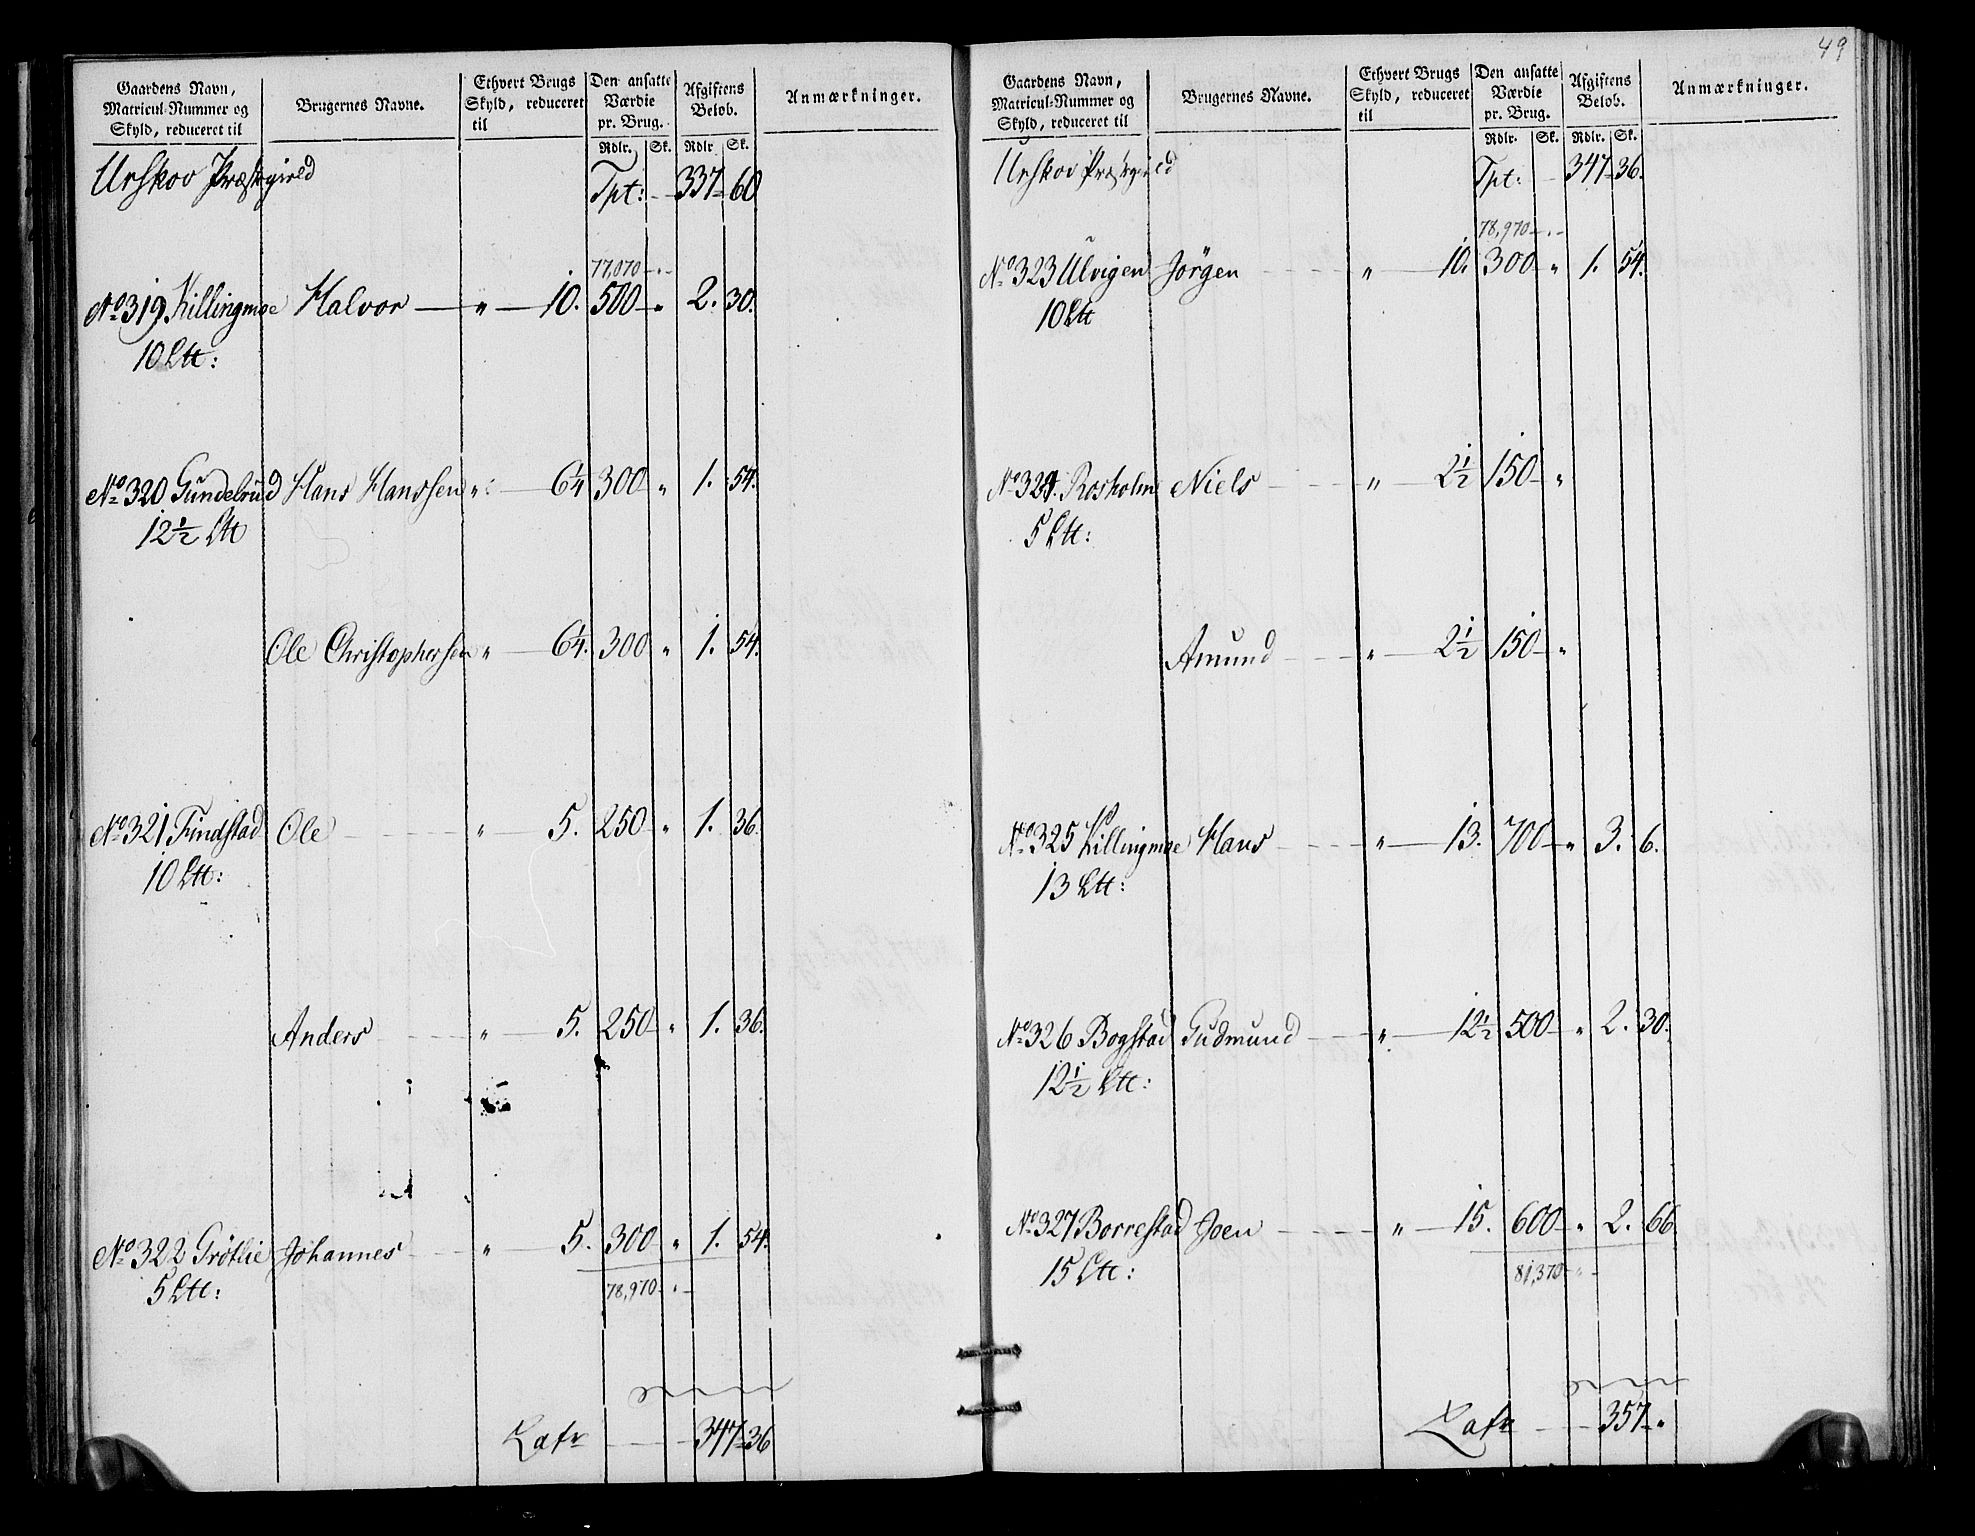 Gaardens Navn, Matricul-Nummer og Skyld, reduceret til | Brugernes Navne. | Ethvert Brugs Skyld, reduceret til | Den ansatte Værdie pr. Brug. | Afgiftens Beløb. | Anmærkninger.
Rdlr. Sk. Rdlr. Sk.
Urskov Præstegield Tpt: 337 60
77,070
No 319. Killingmoe Halvor " 10. 500 " 2. 30.
10 Ltt:
No 320 Gundelrud Hans Hanssen " 6¼ 300 " 1. 54.
12½ Ltt
Ole Christophersen " 6¼. 300 " 1. 54.
No 321 Findstad Ole " 5. 250 " 1. 36.
10 Ltt:
Anders " 5. 250 " 1. 36.
No 322 Grøtlie Johannes " 5. 300 " 1. 54.
5 Ltt:
78,970
Latr 347 36
49
Gaardens Navn, Matricul-Nummer og Skyld, reduceret til | Brugernes Navne. | Ethvert Brugs Skyld, reduceret til | Den ansatte Værdie pr. Brug. | Afgiftens Beløb. | Anmærkninger.
Rdlr. Sk. Rdlr. Sk.
Urskov Præstegield Tpt: 347 36.
78,970
No 323 Ulvigen Jörgen " 10. 300 " 1. 54.
10 Ltt
No 324. Rosholm Niels " 2½ 150 "
5 Ltt:
Amund " 2½ 150 "
No 325 Killingmoe Hans " 13. 700 " 3. 6.
13 Ltt:
No 326 Bogstad Gudmund " 12½ 500 " 2. 30.
12½ Ltt:
No 327 Borrestad Joen " 15. 600 " 2. 66.
15 Ltt:
81,370
Latr 357 "